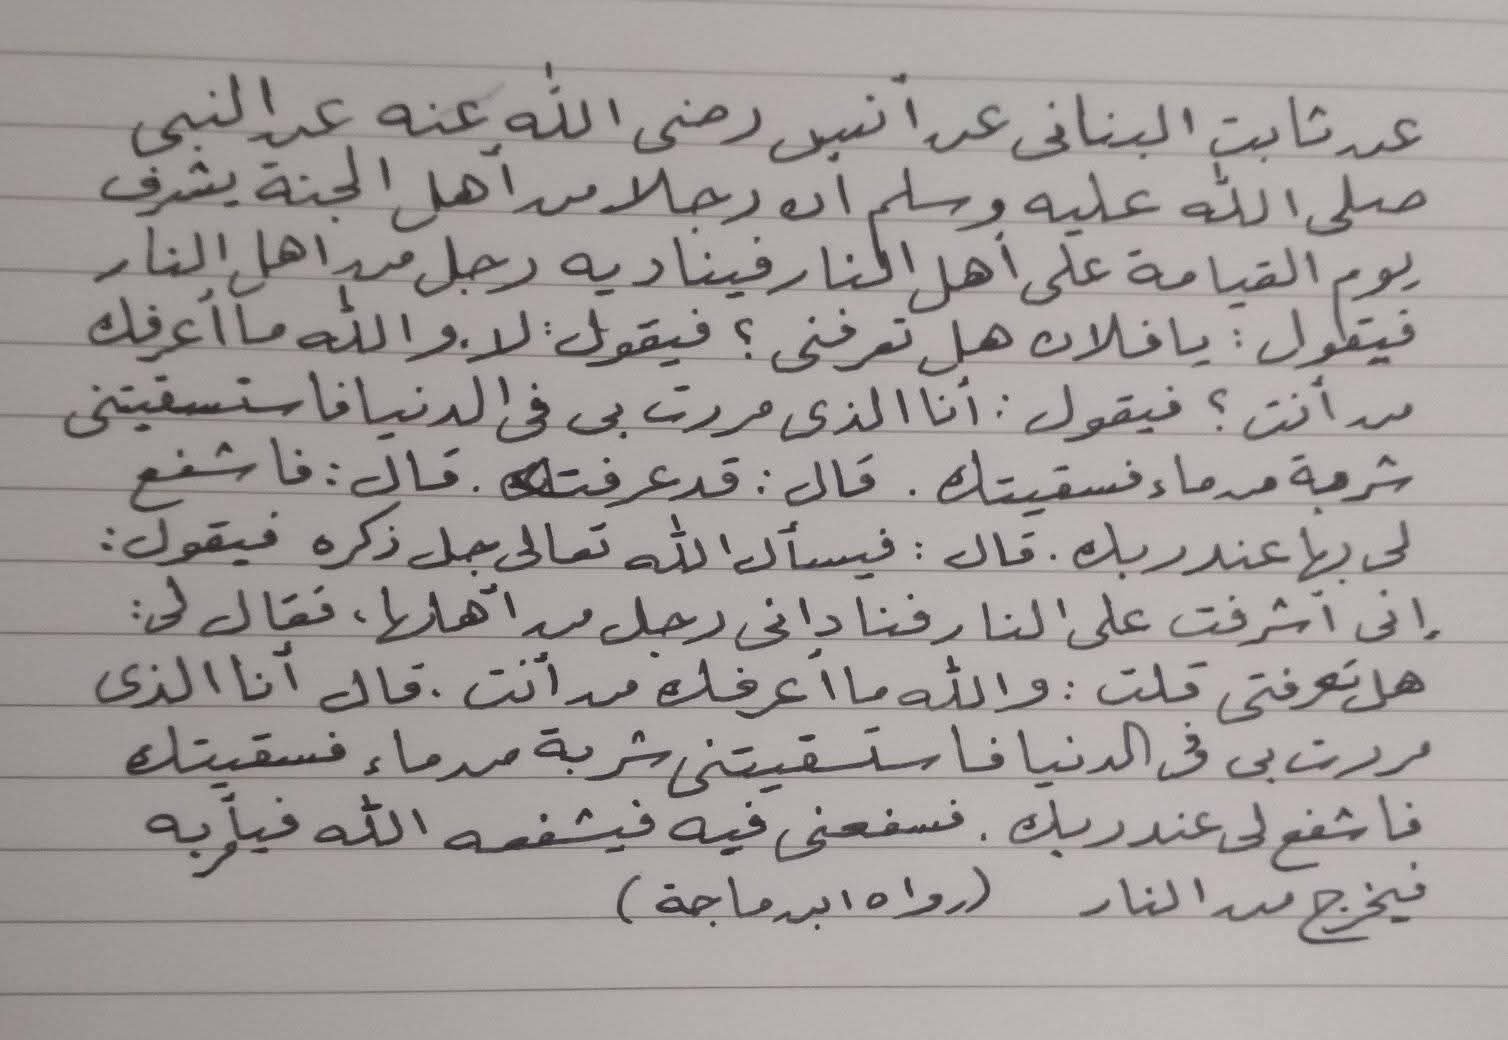 عن ثابت البنانى عن أنس رضى الله عنه عن النبى
صلى الله عليه وسلم أن رجلا من أهل الجنة يشرف
يوم القيامة على أهل النار فيناديه رجل من اهل النار
فيقول : يا فلان هل تعرفنى ؟ فيقول : لا . والله ما أعرفك
من أنت ؟ فيقول : أنا الذى مررت بى فى الدنيا فاستسقيتنى
شربة من ماء فسقيتك . قال : قد عرفتك . قال : فاشفع
لى بها عند ربك . قال : فيسأل الله تعالى جل ذكره فيقول :
إنى أشرفت على النار فنادانى رجل من أهلها ، فقال لى :
هل تعرفنى قلت : والله ما أعرفك من أنت . قال أنا الذى
مررت بى فى الدنيا فاستسقيتنى شربة من ماء فسقيتك
فاشفع لى عند ربك . فسفعنى فيه فيشفعه الله فيأمر به
فيخرج من النار (رواه ابن ماجة)